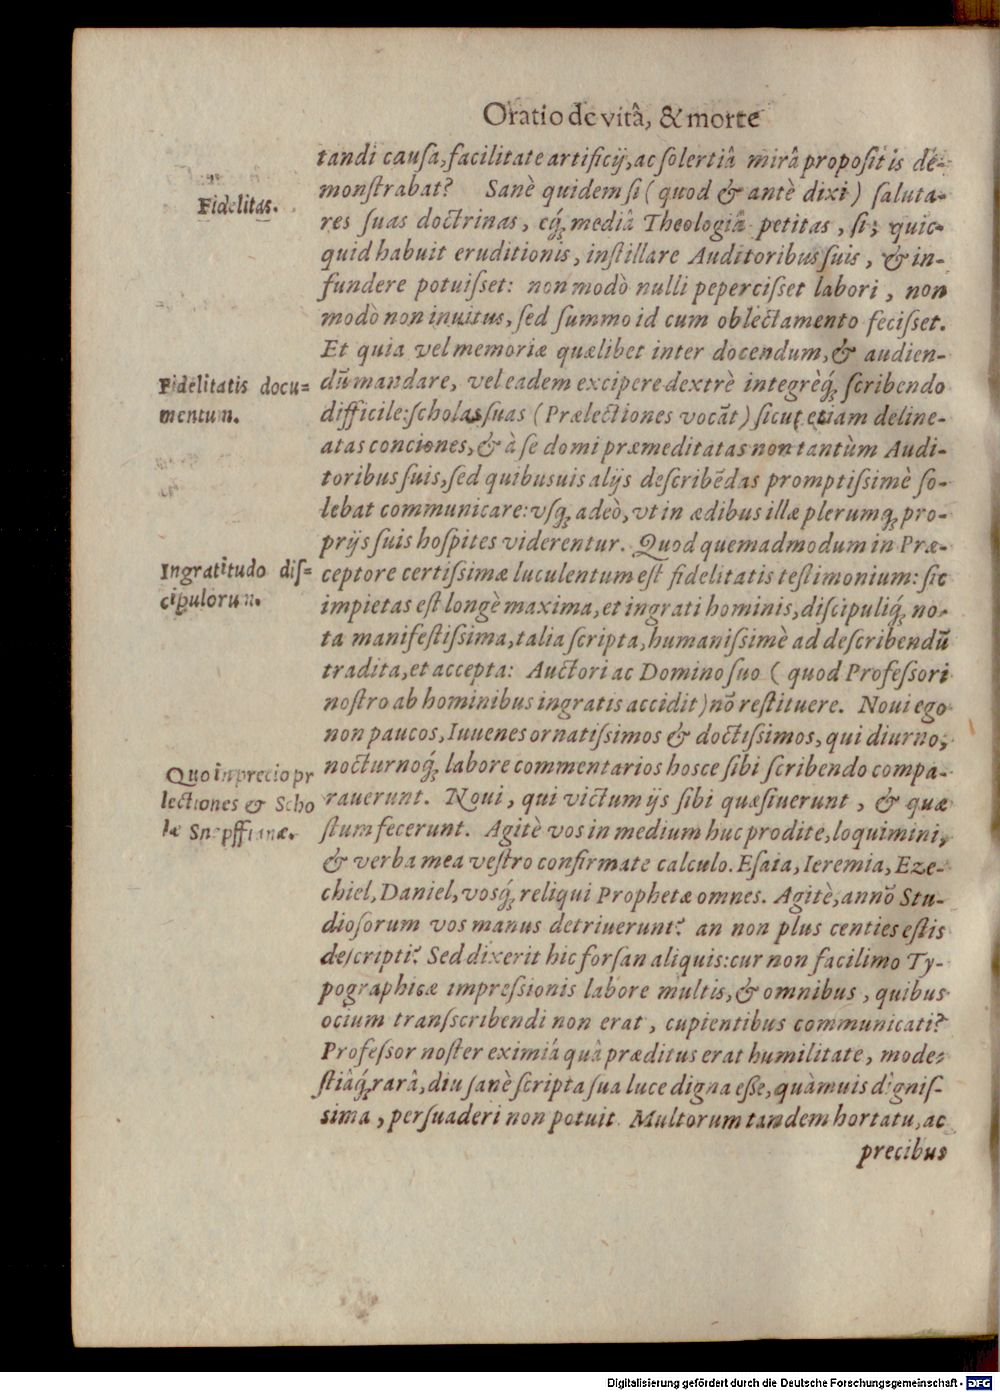 Oratio de vitâ, & morte
tandi cauſa, facilitate artificij, ac ſolertiâ mirâ propoſitis de-
monſtrabat? Sanè quidem ſi ( quod & antè dixi ) ſaluta-
Fidelitas.
res ſuas doctrinas, eq́ꝫ mediâ Theologiâ petitas, ſi; quic-
quid habuit eruditionis, inſtillare Auditoribus ſuis, & in-
fundere potuiſset: non modò nulli peperciſset labori, non
modò non inuitus, ſed ſummo id cum oblectamento feciſset.
Et quia vel memoriæ quælibet inter docendum, & audien-
Fidelitatis docu=
mentum.
dũ mandare, vel eadem excipere dextrè integrèq́ꝫ ſcribendo
difficile: ſcholas ſuas (Prælectiones vocãt) ſicut etiam deline-
atas conciones, & à ſe domi præmeditatas non tantùm Audi-
toribus ſuis, ſed quibusuis alijs deſcribẽdas promptiſsimè ſo-
lebat communicare: vſqꝫ adeò, vt in ædibus illæ plerumqꝫ pro-
prijs ſuis hoſpites viderentur. Quod quemadmodum in Præ-
Ingratitudo diſ=
cipulorum.
ceptore certiſsimæ luculentum eſt fidelitatis teſtimonium: ſic
impietas eſt longè maxima, et ingrati hominis, diſcipuliq́ꝫ no-
ta manifeſtiſsima, talia ſcripta, humaniſsimè ad deſcribendũ
tradita, et accepta: Auctori ac Domino ſuo ( quod Profeſſori
noſtro ab hominibus ingratis accidit ) nõ reſtituere. Noui ego
non paucos, Iuuenes ornatiſsimos & doctiſsimos, qui diurno,
nocturnoq́ꝫ labore commentarios hosce ſibi ſcribendo compa-
Quo in precio pr
lectiones & Scho
læ Snepffianæ.
rauerunt. Noui, qui victum ijs ſibi quæſiuerunt, & quæ
ſtum fecerunt. Agitè vos in medium huc prodite, loquimini,
& verba mea veſtro confirmate calculo. Eſaia, Ieremia, Eze-
chiel, Daniel, vosq́ꝫ reliqui Prophetæ omnes. Agitè, annõ Stu-
dioſorum vos manus detriuerunt? an non plus centies eſtis
deſcripti? Sed dixerit hic forſan aliquis: cur non facilimo Ty-
pographicæ impreſsionis labore multis, & omnibus, quibus
ocium tranſscribendi non erat, cupientibus communicati?
Profeſsor noſter eximiâ quâ præditus erat humilitate, mode-
ſtiâq́ꝫ rarâ, diu ſanè ſcripta ſua luce digna eſſe, quàmuis digniſ-
sima, perſuaderi non potuit. Multorum tandem hortatu, ac
precibus
Digitalisierung gefördert durch die Deutsche Forschungsgemeinschaft - DFG